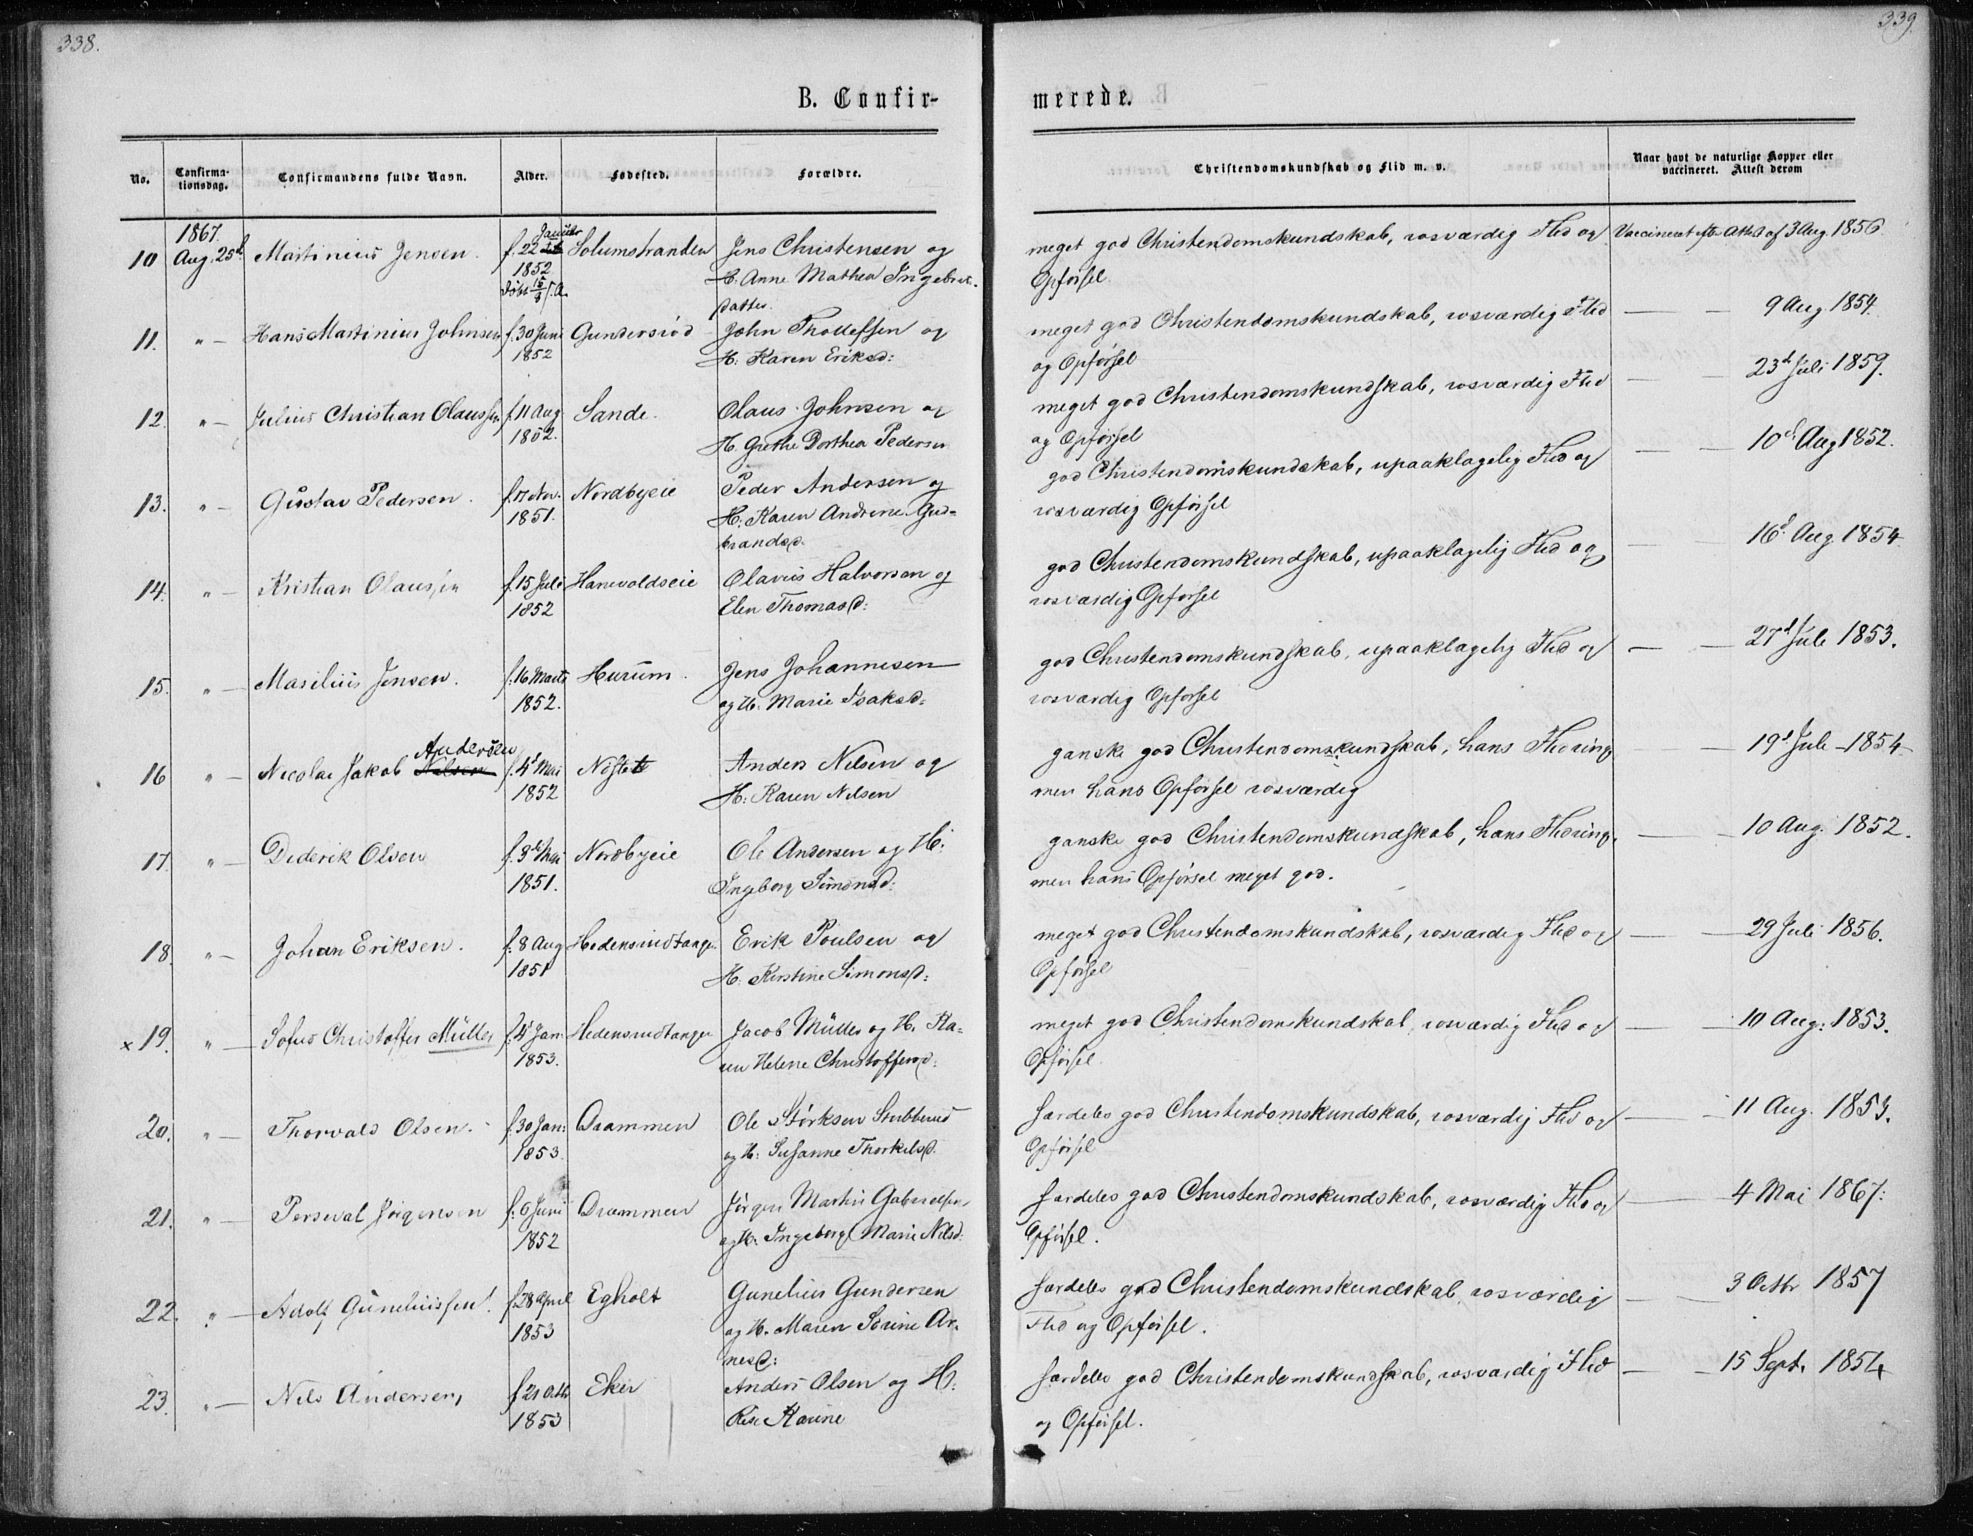 338.
339.
B. Confir-
merede.
No.
Confirma-
tionsdag.
Confirmandens fulde Navn.
Alder.
Fødested.
Forældre.
Christendomskundskab og Flid m. v.
Naar havt de naturlige Kopper eller
vaccineret. Attest derom
1867.
10 Aug. 25d Martinius Jensen. f. 22 Januar Solumstranden Jens Christensen og meget god Christendomskundskab, rosværdig Flid og Vaccineret eftr. Attest af 3 Aug. 1856.
1852 H. Anne Mathea Ingebret- Opførsel.
døbt 15/3 s. A. datter.
11. " — Hans Martinius Johnsen f. 30 Juni Gundersrød John Thodefsen og meget god Christendomskundskab, rosværdig Flid — — 9 Aug 1854.
1852 H: Karen Eriksd: og Opførsel
12. " — Julius Christian Olaussen f. 11 Aug Sande. Olaus Johnsen og meget god Christendomskundskab, rosværdig Flid — — 23d Juli 1859.
1852. H. Grethe Dorthea Pedersen og Opførsel
13. " — Gustav Pedersen. f. 17 Nov. Nordbyeie Peder Andersen og god Christendomskundskab, upaaklagelig Flid og — — 10d Aug 1852.
1851. H: Karen Andrine Gud- rosværdig Opførsel
brandsd.
14. " — Kristian Olaussen f. 15 Juli Hanevoldseie Olavus Halvorsen og god Christendomskundskab, upaaklagelig Flid og — — 16d Aug 1854
1852 Elen Thomasd: rosværdig Opførsel
15. " — Masilius Jensen. f. 16 Marts Hurum. Jens Johannesen god Christendomskundskab, upaaklagelig Flid og — — 27d Juli 1853.
1852. og H. Marie Isaksd: rosværdig Opførsel
16 " — Nicolai Jakob Nilsen Andersen f. 4d Mai Nøste Anders Nilsen og ganske god Christendomskundskab, hans Flid ring — 19d Juli 1854
1852 H: Karen Nilsen men hans Opførsel rosværdig
17. " — Diderik Olsen f. 3d Mai Nordbyeie Ole Andersen og H: ganske god Christendomskundskab, hans Flid ring, — — 10 Aug. 1852.
1851. Ingeborg Simonsd: men hans Opførsel meget god.
18. " — Johan Eriksen. f. 8 Aug Hedensrudtangen Erik Poulsen og meget god Christendomskundskab, rosværdig Flid og — — 29 Juli 1856.
1851 H. Kirstine Simonsd: Opførsel
x 19. " — Sofus Christoffer Müller f. 4d Jan: Hedensrudtangen Jacob Müller og H. Ka- meget god Christendomskundskab, rosværdig Flid og — — 10 Aug: 1853.
1853. ren Helene Christoffersd: Opførsel.
20. " — Thorvald Olsen. f. 30 Jan: Drammen Ole Størksen Stubberud særdeles god Christendomskundskab, rosværdig Flid og — — 11 Aug. 1853.
1853. og H: Susanne Thorkilsd. Opførsel
21. " — Perseval Jørgensen f. 6 Juni Drammen Jørgen Martin Gabrielsen særdeles god Christendomskundskab, rosværdig Flid og — — 4 Mai 1867:
1852 og H. Ingeborg Marie Nilsd: Opførsel.
22. " — Adolf Guneliussen. f. 28 April Egholt Gunelius Gundersen særdeles god Christendomskundskab, rosværdig — — 3 Octbr 1857
1853 og H. Maren Sørine Ar- Flid og Opførsel.
nesd:
23. " — Nils Andersen, f. 21 Octb Eker Anders Olsen og H: særdeles god Christendomskundskab, rosværdig Flid — — 15 Sept. 1854
1853 Karine og Opførsel.